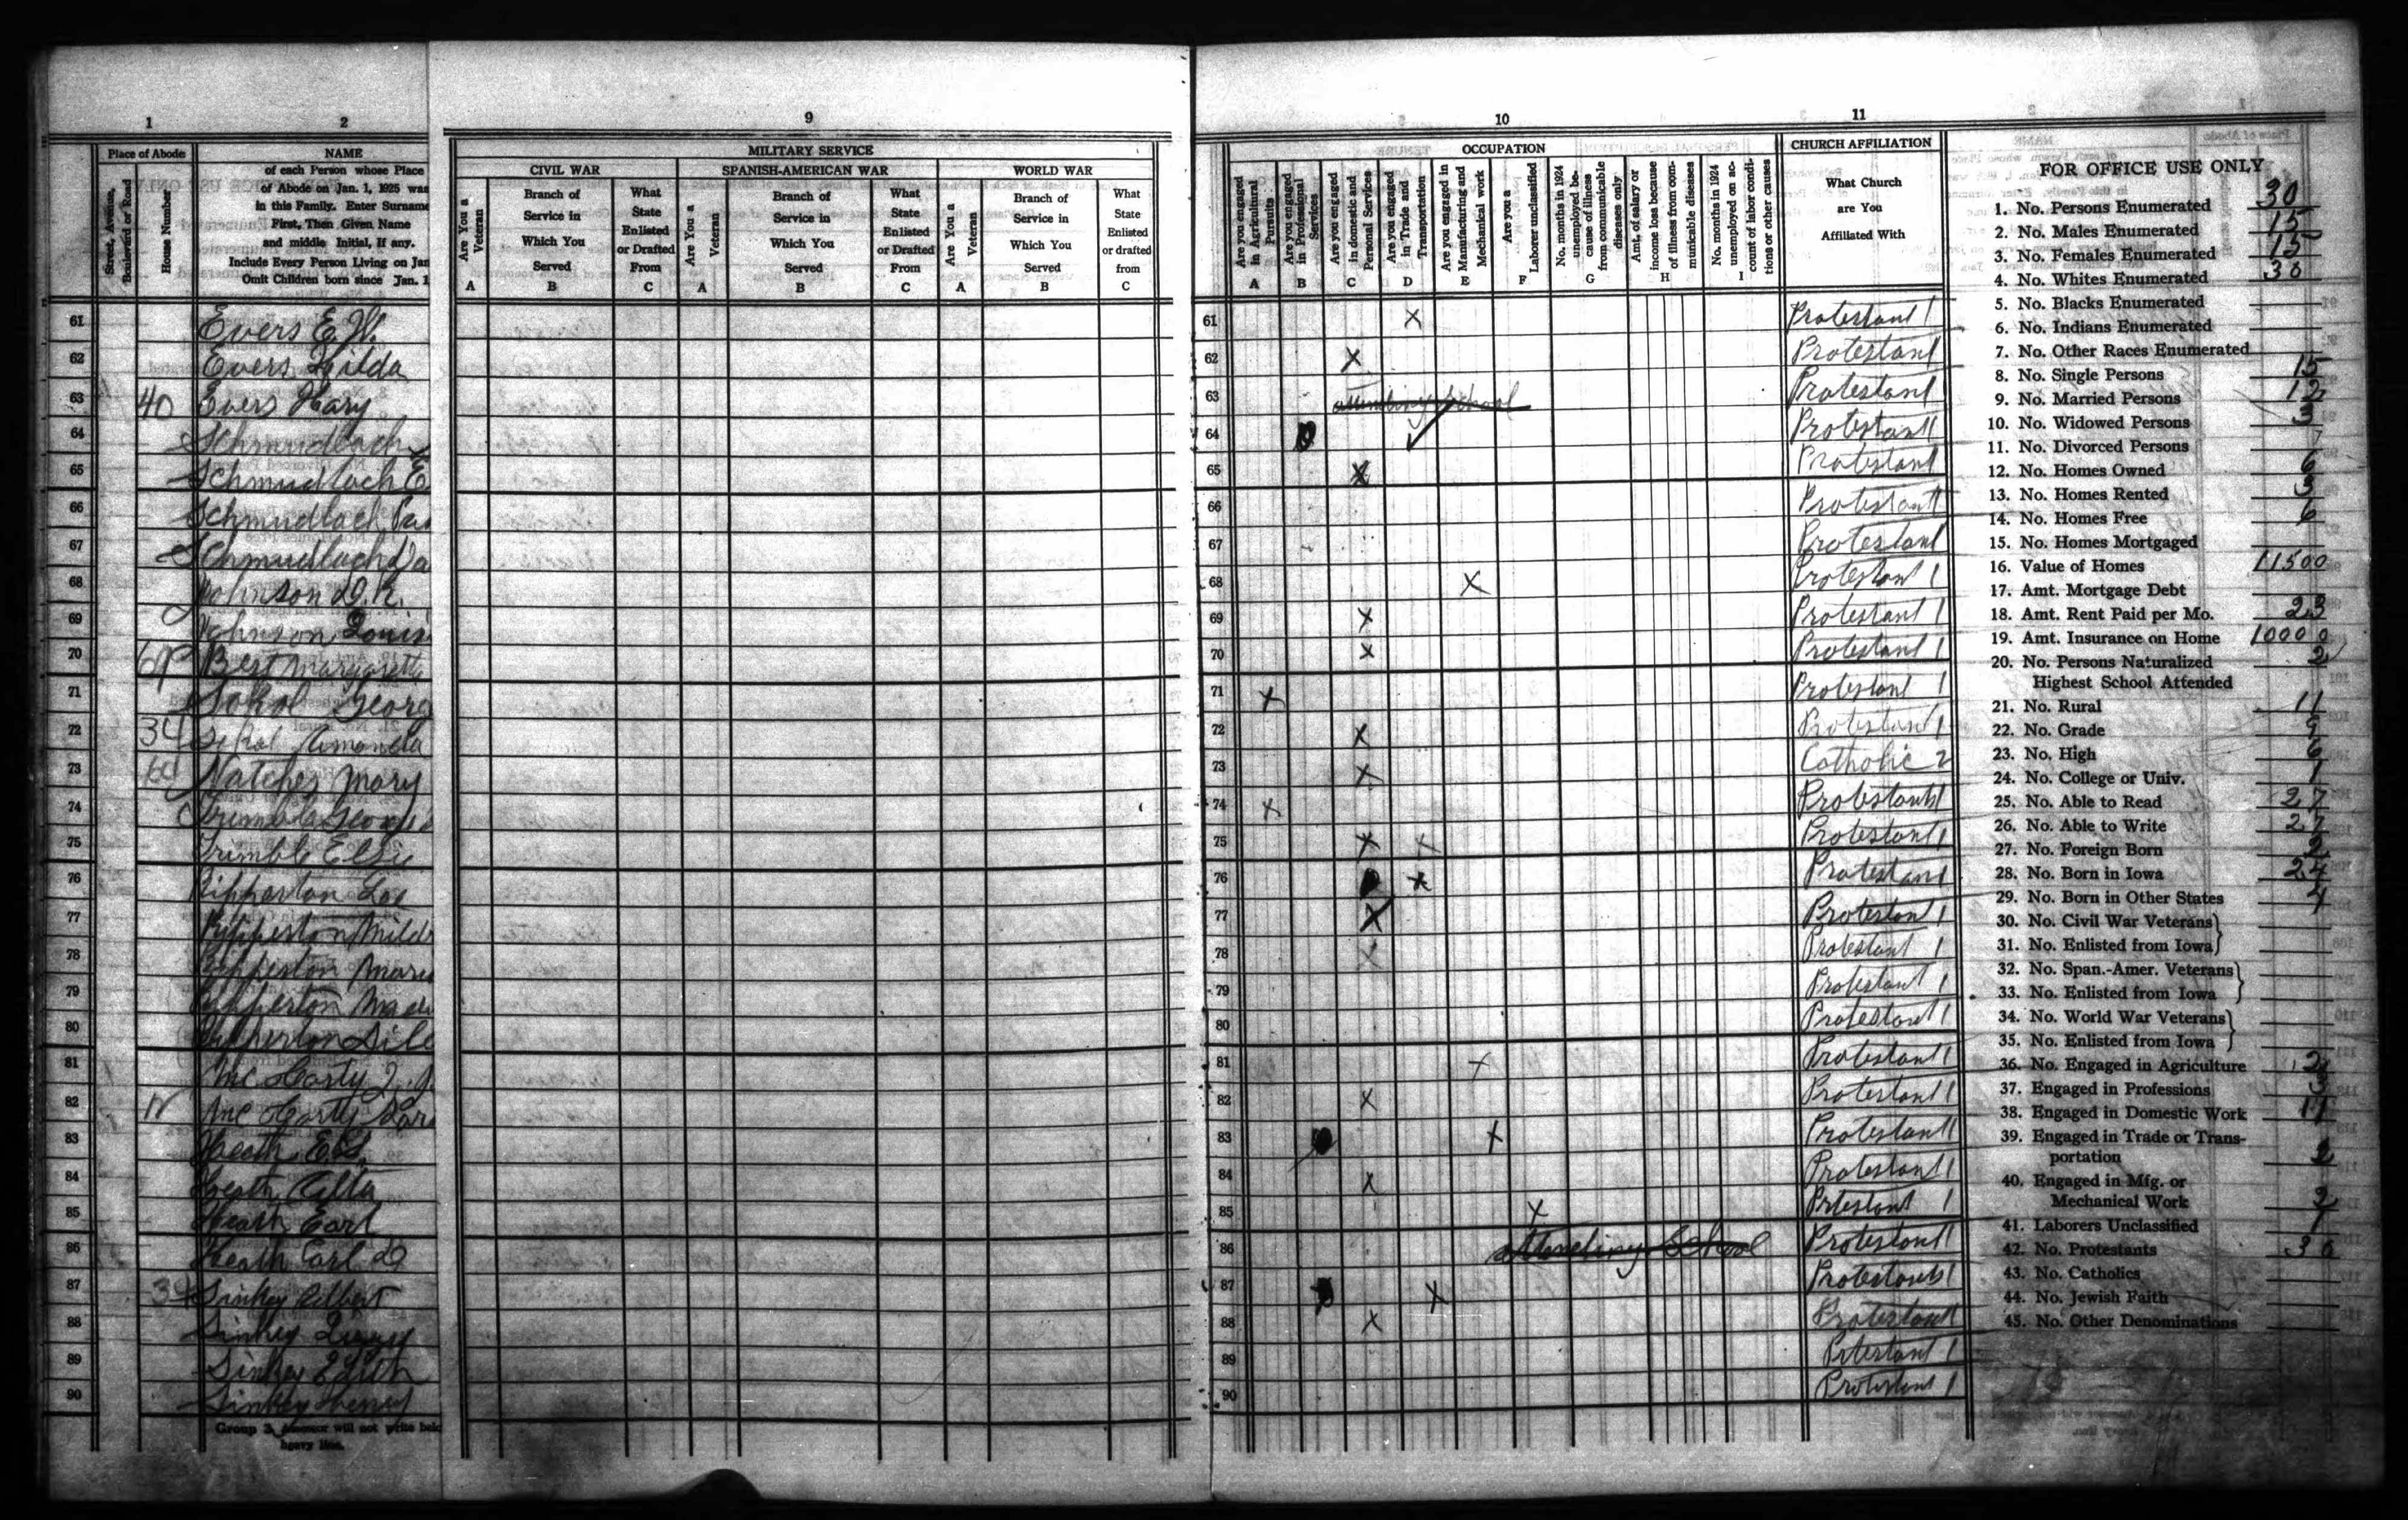 1 2 9 10 11
Place of Abode
Street, Avenue, Boulevard or Road
Home Number
NAME
of each Person whose Place
of Abode on Jan. 1, 1925 was
in this Family. Enter Surname
First, Then Given Name
and middle Initial, If any.
Include Every Person Living on Jan
Omit Children born since Jan. 1
MILITARY SERVICE
CIVIL WAR
SPANISH-AMERICAN WAR
WORLD WAR
Are You a Veteran
Branch of Service in Which You Served
What State Enlisted or Drafted From
Are You a Veteran
Branch of Service in Which You Served
What State Enlisted or Drafted From
Are You a Veteran
Branch of Service in Which You Served
What State Enlisted or drafted from
A B C A B C A B C
OCCUPATION
Are you engaged in Agricultural Pursuits
Are you engaged in Professional Services
Are you engaged in domestic and Personal Services
Are you engaged in Trade and Transportation
Are you engaged in Manufacturing and Mechanical work
Are you a Laborer unclassified
No. months in 1924 unemployed because of illness from communicable diseases only
Amt. of salary or income loss because of illness from communicable diseases
No. months in 1924 unemployed on account of labor conditions or other causes
A B C D E F G H I
CHURCH AFFILIATION
What Church
are You
Affiliated With
61 Evers E.W. 61 X Protestant 1
62 Evers Hilda 62 X Protestant
63 40 Evers Hary 63 attending School Protestant
64 Schmudlach 64 Protestant
65 Schmudlach E 65 X Protestant
66 Schmudlach Pau 66 Protestant
67 Schmudlach Da 67 Protestant
68 Johnson D.R. 68 X Protestant 1
69 Johnson Louis 69 X Protestant 1
70 Best Margarett 70 X Protestant 1
71 Sokol Georg 71 X Protestant 1
72 34 Sokol Amanda 72 X Protestant 1
73 Natches Mary 73 X Catholic 2
74 Trimble George 74 X Protestant 1
75 Trimble Elsie 75 X X Protestant 1
76 Ripperton Lee 76 X Protestant
77 Ripperton Mild 77 X Protestant 1
78 Ripperton Mari 78 X Protestant 1
79 Ripperton Made 79 Protestant 1
80 Ripperton Dile 80 Protestant 1
81 Mc Carty 81 X Protestant 1
82 Mc Carty Sar 82 X Protestant 1
83 Heath E 83 X Protestant 1
84 Heath Alta 84 X Protestant 1
85 Heath Earl 85 X Prtestant 1
86 Heath Earl D 86 attending School Protestant 1
87 34 Sinkey Albert 87 X Protestant 1
88 Sinkey 88 X Protestant
89 Sinkey Edith 89 Prtestant 1
90 Sinkey Henry 90 Protestant 1
Group 3, Assessor will not write below
heavy line.
FOR OFFICE USE ONLY
1. No. Persons Enumerated 30
2. No. Males Enumerated 15
3. No. Females Enumerated 15
4. No. Whites Enumerated 30
5. No. Blacks Enumerated
6. No. Indians Enumerated
7. No. Other Races Enumerated
8. No. Single Persons 15
9. No. Married Persons 12
10. No. Widowed Persons 3
11. No. Divorced Persons
12. No. Homes Owned 6
13. No. Homes Rented 3
14. No. Homes Free 6
15. No. Homes Mortgaged
16. Value of Homes 11500
17. Amt. Mortgage Debt
18. Amt. Rent Paid per Mo. 23
19. Amt. Insurance on Home 10000
20. No. Persons Naturalized 2
Highest School Attended
21. No. Rural 11
22. No. Grade 9
23. No. High 6
24. No. College or Univ. 1
25. No. Able to Read 27
26. No. Able to Write 27
27. No. Foreign Born 2
28. No. Born in Iowa 24
29. No. Born in Other States 4
30. No. Civil War Veterans
31. No. Enlisted from Iowa
32. No. Span.-Amer. Veterans
33. No. Enlisted from Iowa
34. No. World War Veterans
35. No. Enlisted from Iowa
36. No. Engaged in Agriculture 2
37. Engaged in Professions 3
38. Engaged in Domestic Work 11
39. Engaged in Trade or Trans-
portation 2
40. Engaged in Mfg. or
Mechanical Work 2
41. Laborers Unclassified 1
42. No. Protestants 30
43. No. Catholics
44. No. Jewish Faith
45. No. Other Denominations